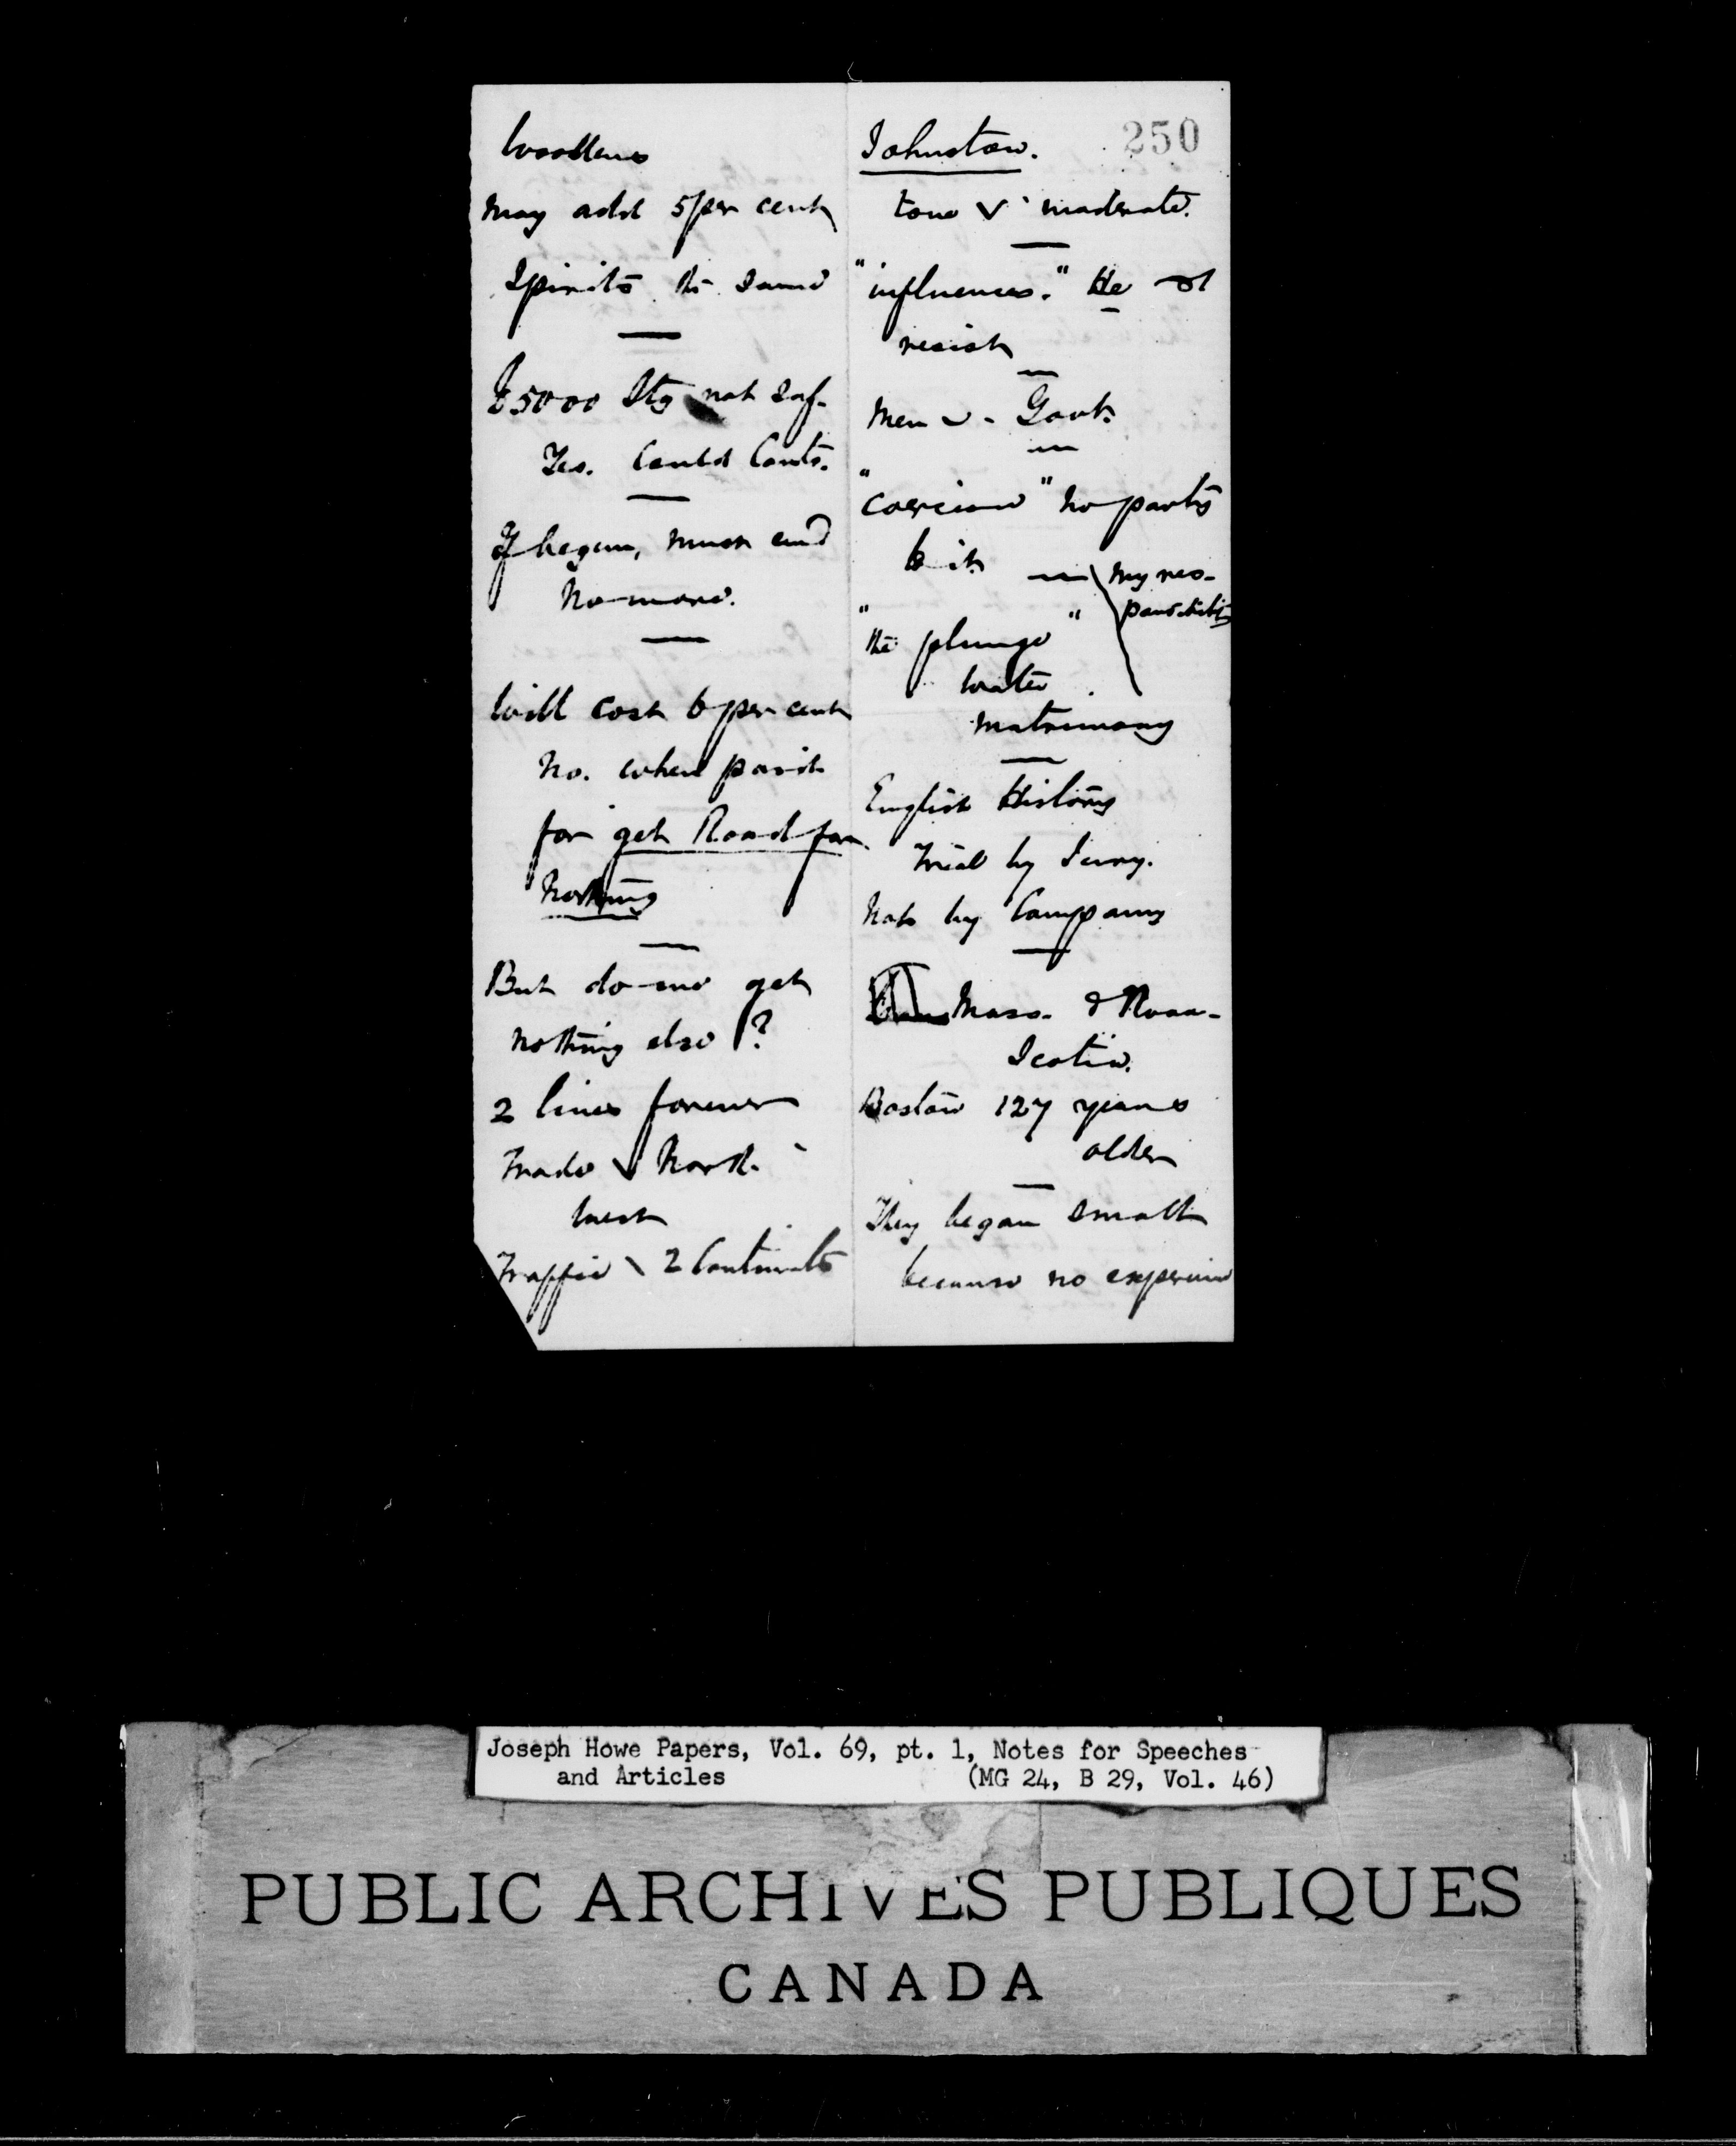 Woollens
may add 5 per cent
Spirits the same
£5000 Stg not suf.
Yes. Could Conts.
If begun, must end
No more.
Will cost 6 per cent
No. when paid
for get Road for
Nothing
But do we get
nothing else?
2 lines forever
Trade North
West
Traffic \ 2 Continents
250
Johnston.
tone moderate.
"influences." He
resist
Men Govt.
"coercion" No party
to it
my res-
ponsibility
"the plunge"
water
matrimony
English History
Trial by Jury.
Not by Company
Mass. & Nova-
Scotia.
Boston 127 years
older
They began small
because no experience
Joseph Howe Papers, Vol. 69, pt. 1, Notes for Speeches
and Articles (MG 24, B 29, Vol. 46)
PUBLIC ARCHIVES PUBLIQUES
CANADA